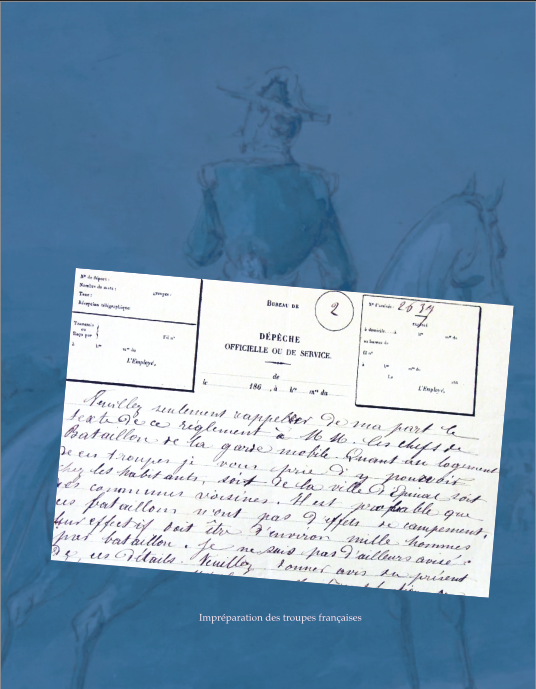 N° de départ :
Nombre de mots : Groupes :
Taxe :
Réception télégraphique
Transmis
ou
Reçu par
Fil n°
à h m du
L'Employé,
BUREAU DE
2
DÉPÊCHE
OFFICIELLE OU DE SERVICE.
de
le 186 , à h m du
N° d'arrivée : 2639
à domicile à h m du
au bureau de
Fil n°
à h m du
Le 186
L'Employé,
Veuillez seulement rappeler de ma part le
texte de ce règlement à M M. les chefs de
Bataillon de la garde mobile. Quant au logement
de ces troupes je vous prie d'y pourvoir
chez les habitants, soit de la ville d'Epinal soit
des communes voisines. Il est probable que
ces bataillons n'ont pas d'effets de campement.
leur effectif doit être d'environ mille hommes
par bataillon. Je ne suis pas d'ailleurs avisé
de ces détails. Veuillez donner avis du présent
Impréparation des troupes françaises